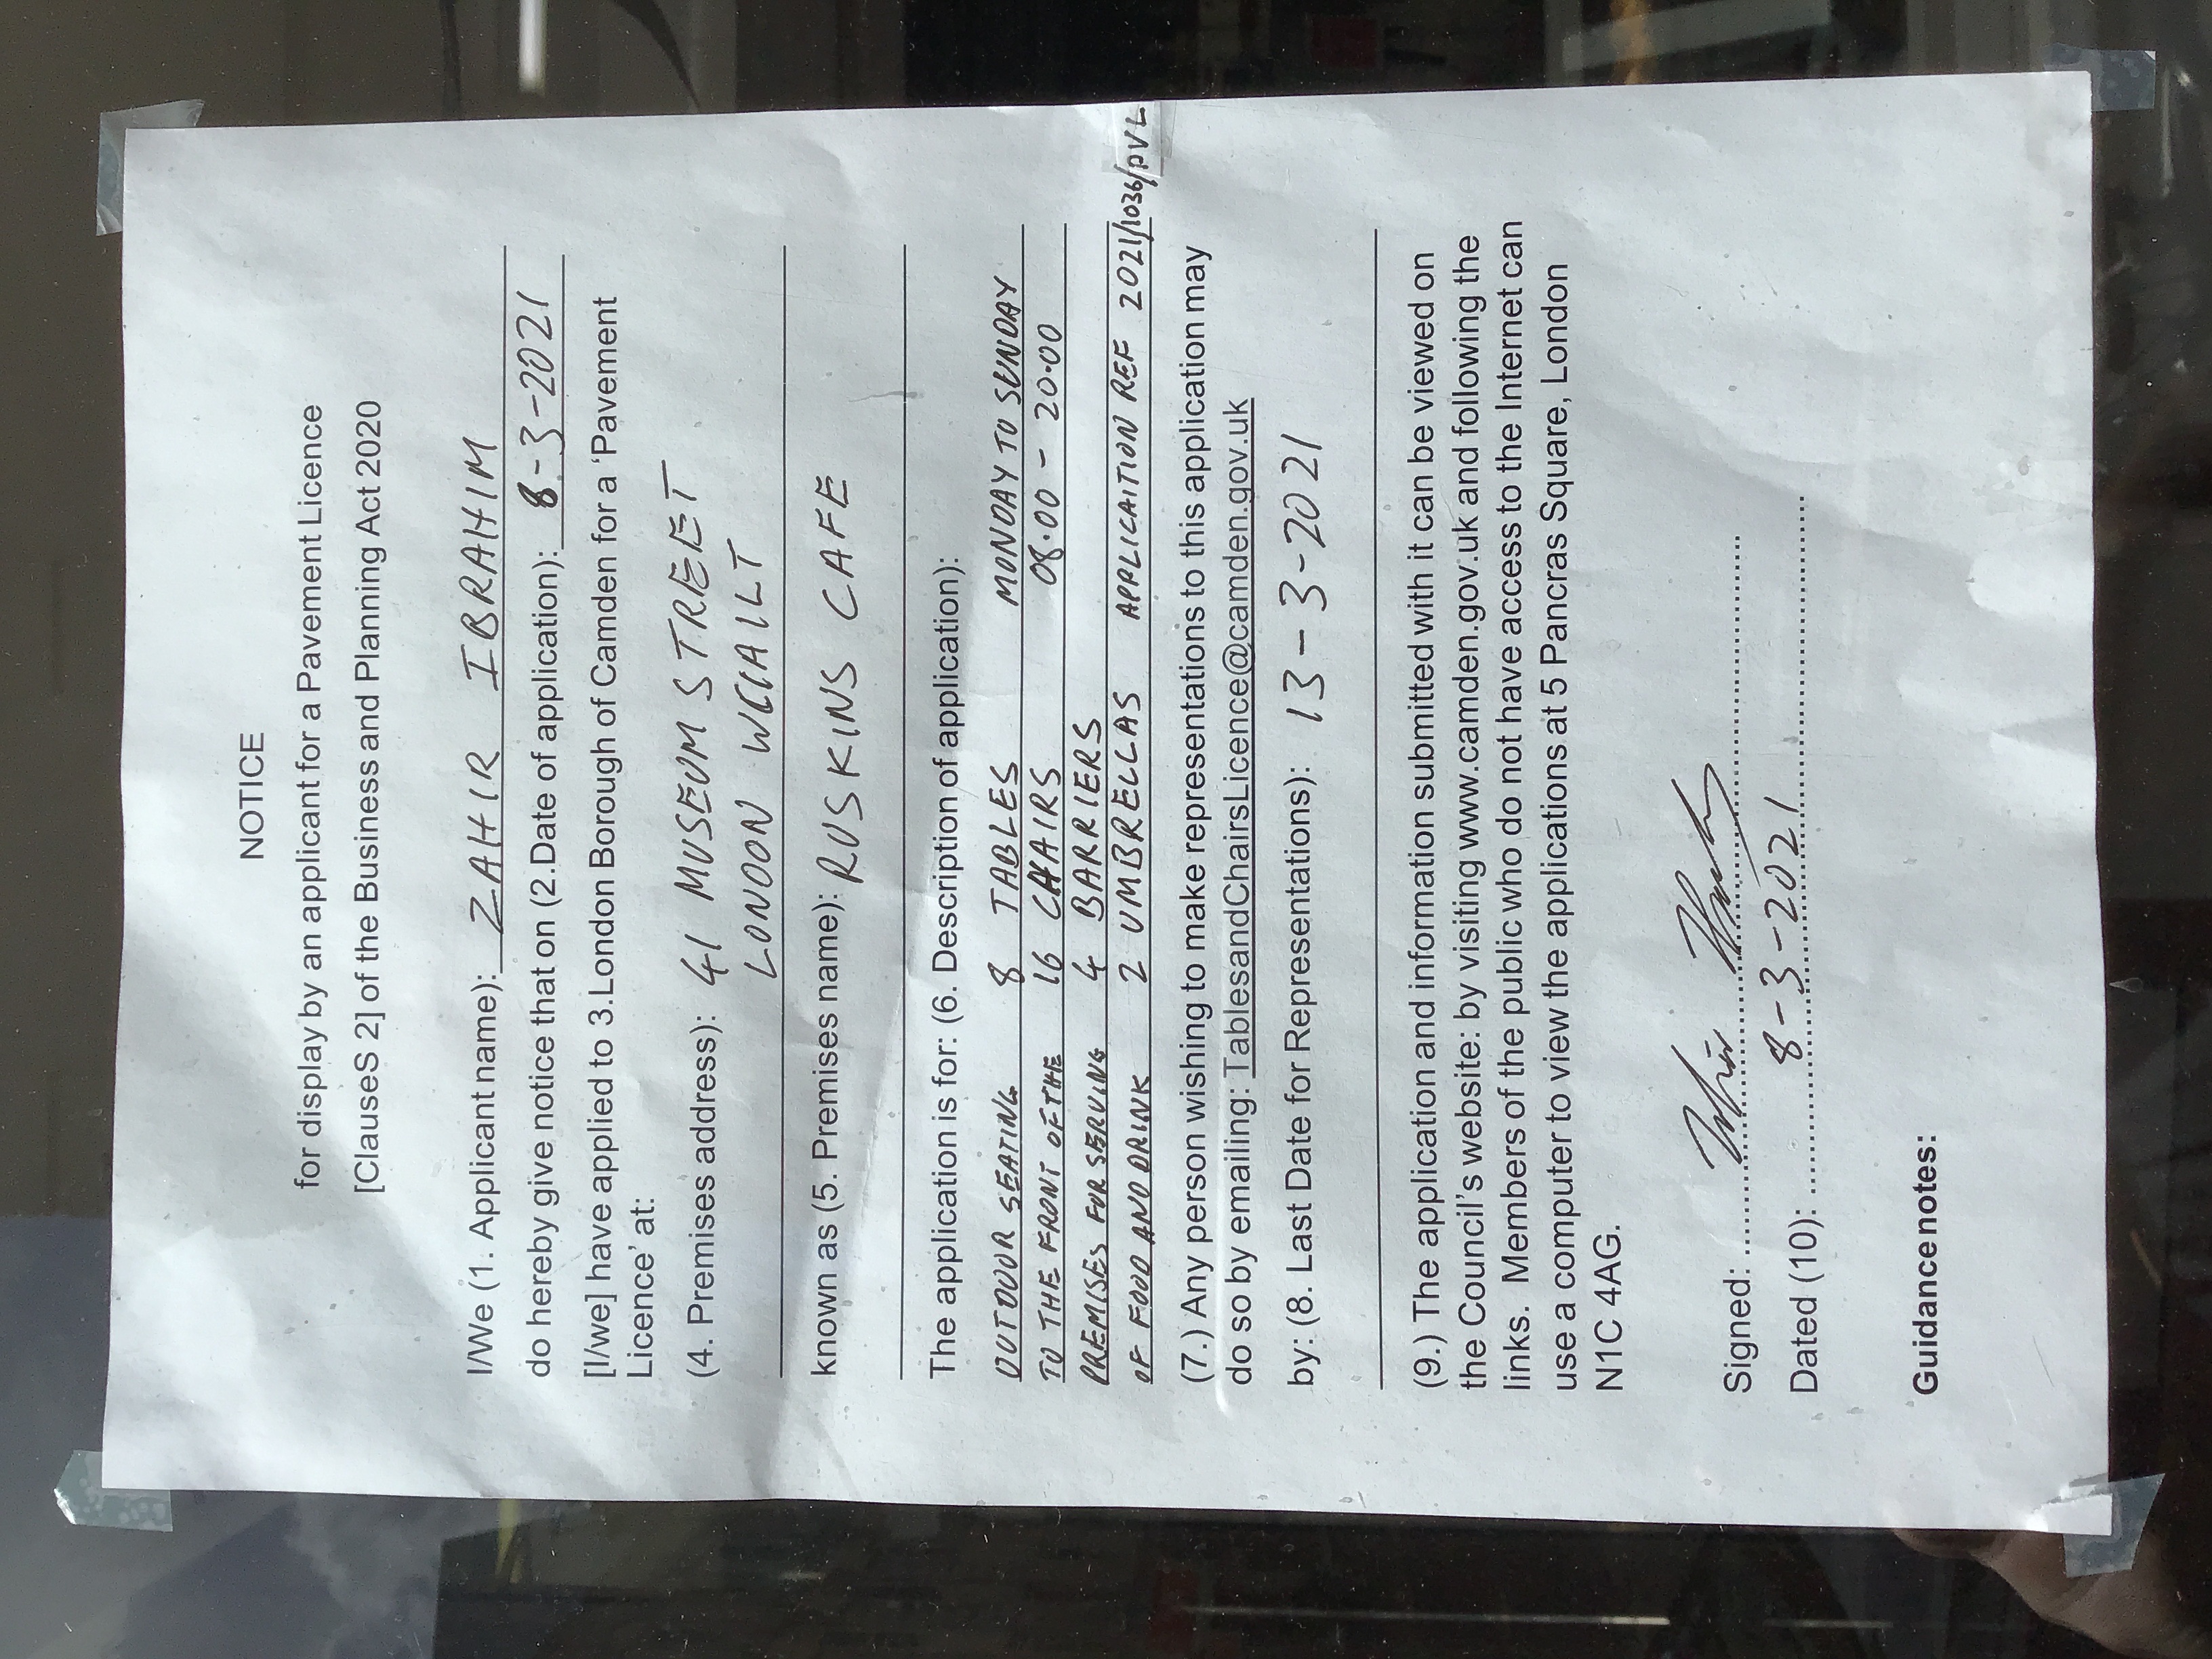 NOTICE
for display by an applicant for a Pavement Licence
[ClauseS 2] of the Business and Planning Act 2020
I/We (1. Applicant name): ZAHIR IBRAHIM
do hereby give notice that on (2.Date of application): 8-3-2021
[I/we] have applied to 3.London Borough of Camden for a 'Pavement
Licence' at:
(4. Premises address): 41 MUSEUM STREET
LONDON WC1A1LT
known as (5. Premises name): RUSKINS CAFE
The application is for: (6. Description of application):
OUTDOOR SEATING 8 TABLES MONDAY TO SUNDAY
TO THE FRONT OF THE 16 CHAIRS 08.00 - 20.00
PREMISES FOR SERVING 4 BARRIERS
OF FOOD AND DRINK 2 UMBRELLAS APPLICAITION REF 2021/1036/PVL
(7.) Any person wishing to make representations to this application may
do so by emailing: TablesandChairsLicence@camden.gov.uk
by: (8. Last Date for Representations): 13-3-2021
(9.) The application and information submitted with it can be viewed on
the Council's website: by visiting www.camden.gov.uk and following the
links. Members of the public who do not have access to the Internet can
use a computer to view the applications at 5 Pancras Square, London
N1C 4AG.
Signed:
Dated (10): 8-3-2021
Guidance notes: